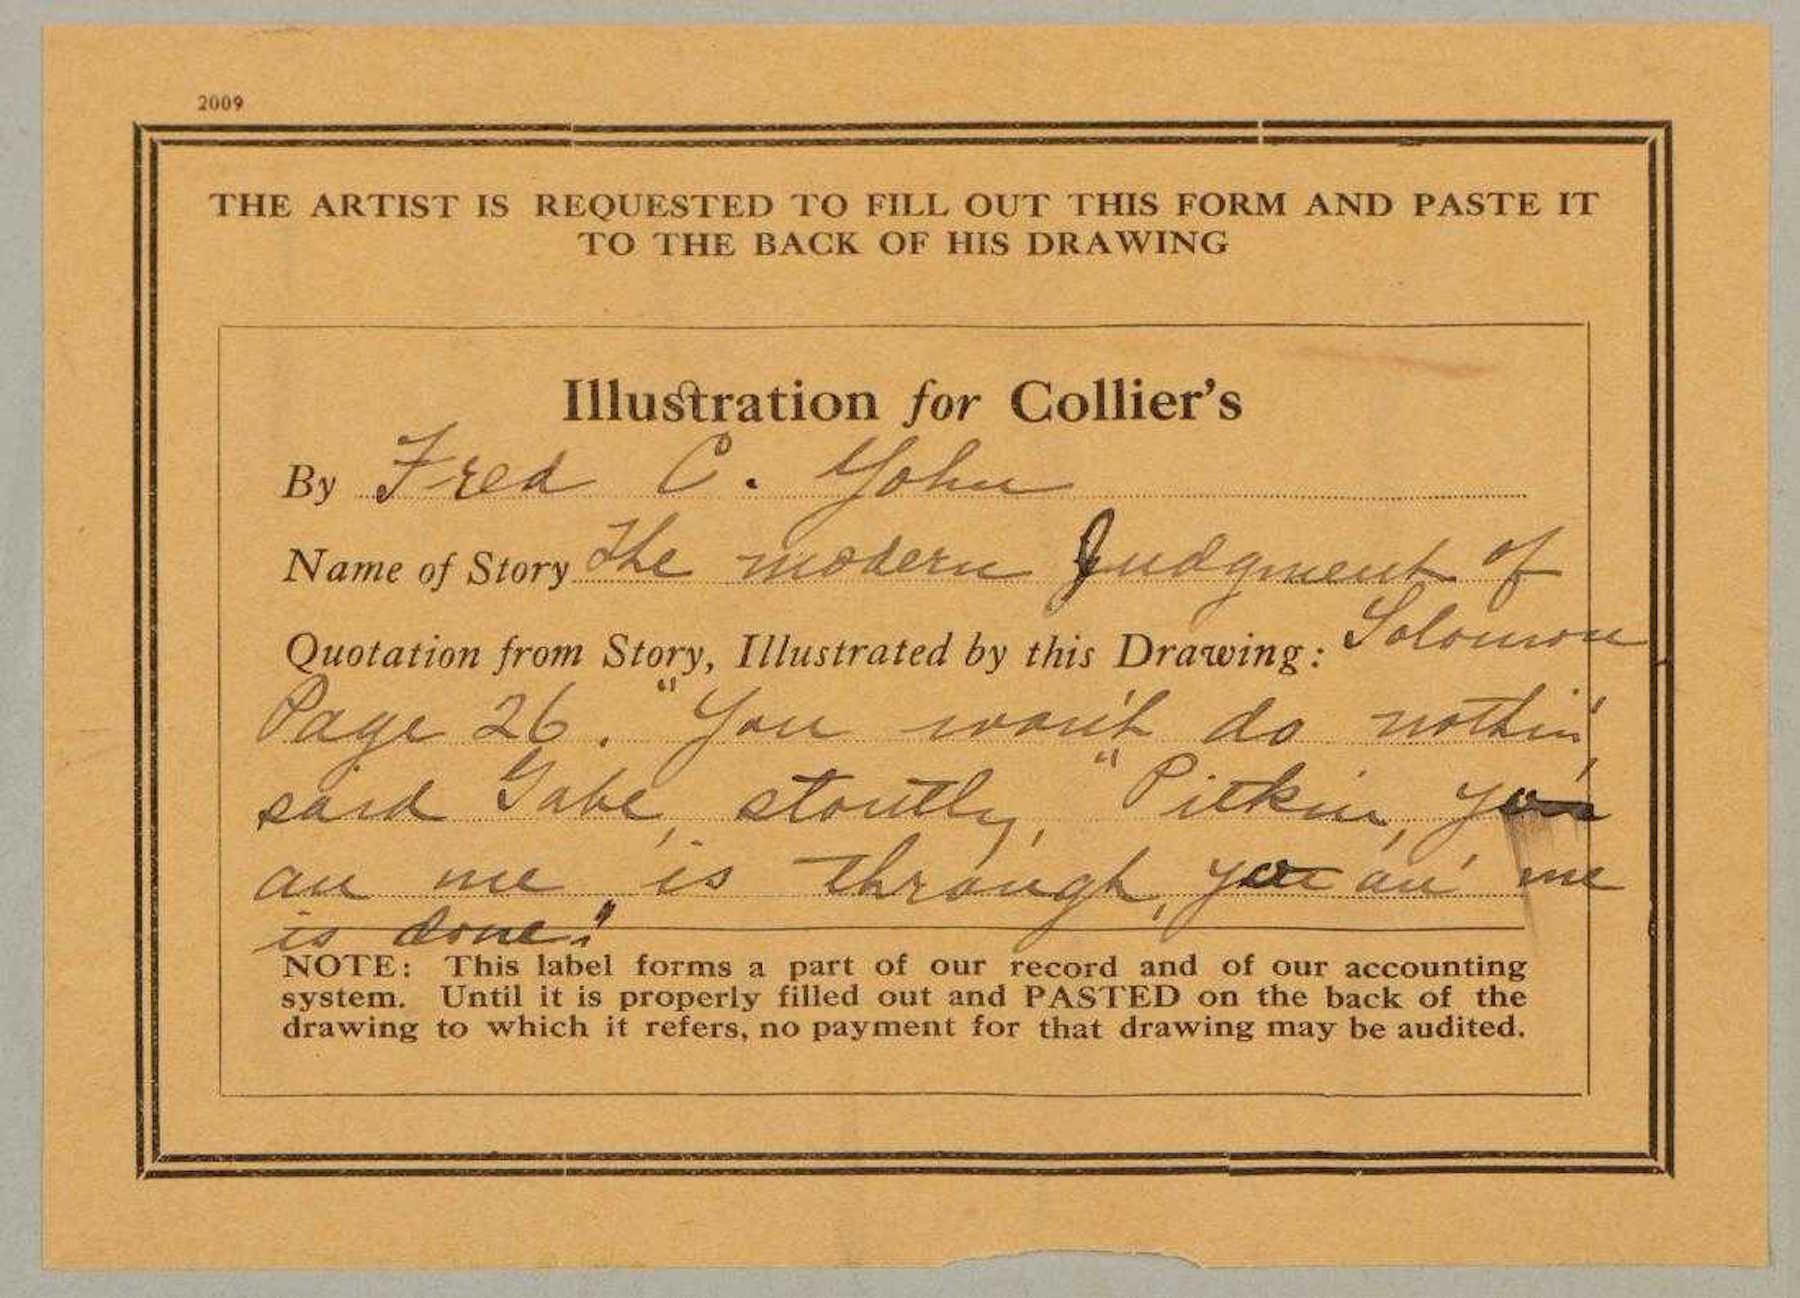 2009
THE ARTIST IS REQUESTED TO FILL OUT THIS FORM AND PASTE IT
TO THE BACK OF HIS DRAWING
Illustration for Collier's
By Fred C. Yohn
Name of Story The modern Judgment of
Quotation from Story, Illustrated by this Drawing: Solomon
Page 26. "You won't do nothin',
said Gabe, stoutly, "Pitkin, you
an me is through, you an' me
is done."
NOTE: This label forms a part of our record and of our accounting
system. Until it is properly filled out and PASTED on the back of the
drawing to which it refers, no payment for that drawing may be audited.